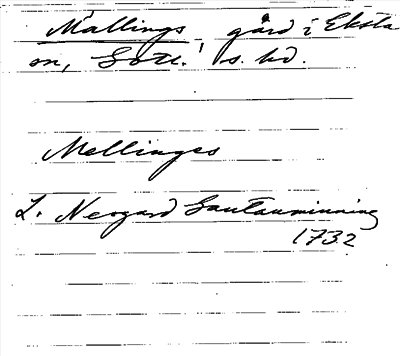 Mallings gård i Eksta
sn, Gotl. s. hd.
Mellinges
L. Neogard Gautauminning
1732